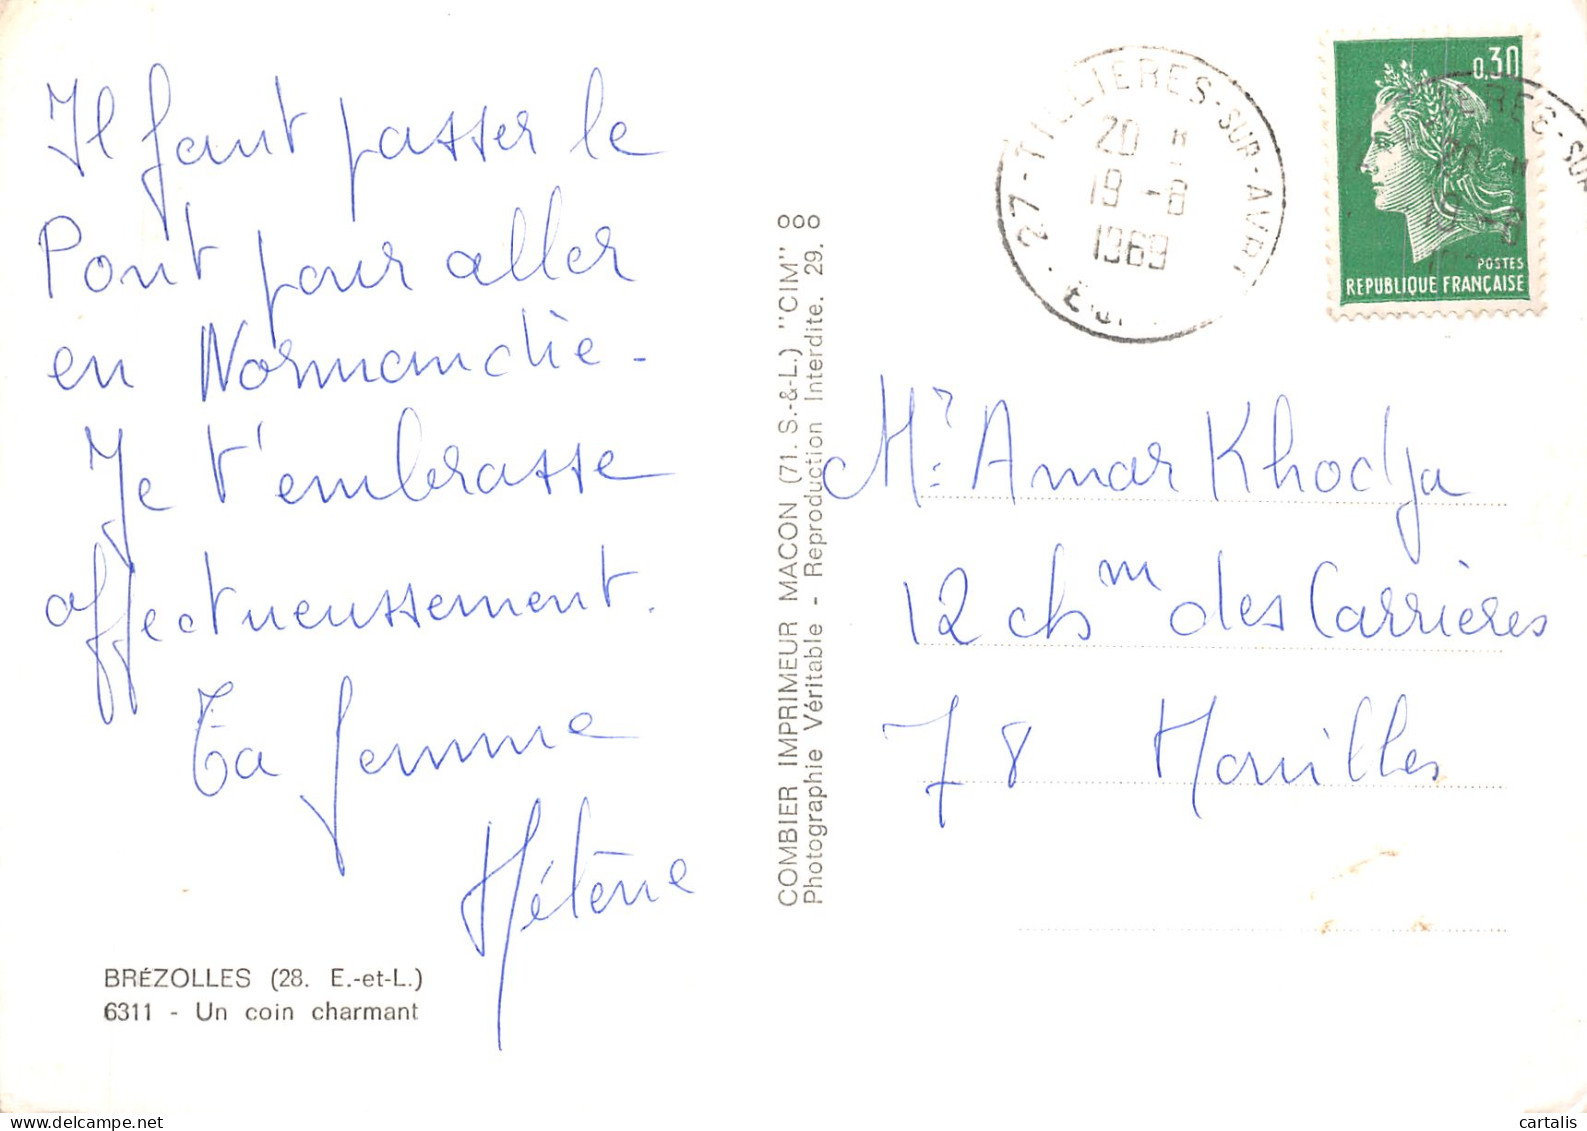 Il faut passer le
Pont pour aller
en Normandie -
Je t'embrasse
affectueusement.
Ta femme
Hélène
BRÉZOLLES (28. E.-et-L.)
6311 - Un coin charmant
COMBIER IMPRIMEUR MACON (71. S.-&-L.) "CIM" ooo
Photographie Véritable - Reproduction Interdite. 29.
27-TILLIERES-SUR-AVRE
20 H
19-8
1969
0,30
POSTES
REPUBLIQUE FRANÇAISE
IERES-SUR
20 H
19-8
Mr Amar Khodja
12 chm des Carrières
78 Houilles
delcampe.net
cartalis